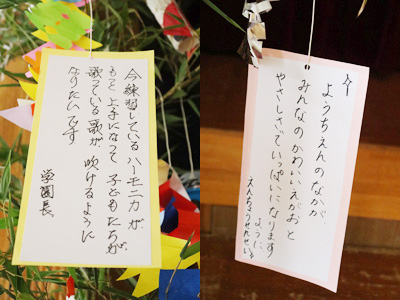 今練習しているハーモニカが、
もっと上手になって 子どもたちが
歌っている歌が、吹けるように
なりたいです
学園長
ようちえんのなかが
みんなのかわいいえがおと
やさしさでいっぱいになります
ように
えんちょうせんせい